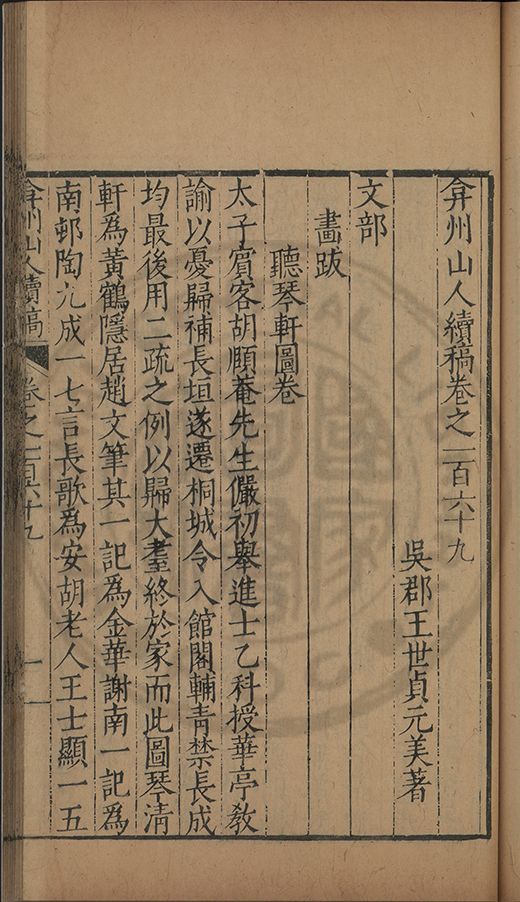 弇州山人續稿卷之一百六十九
吳郡王世貞元美著
文部
畫跋
聽琴軒圖卷
太子賓客胡頤菴先生儼初舉進士乙科授華亭敎
諭以憂歸補長垣遂遷桐城令入館閣輔青禁長成
均最後用二疏之例以歸大耋終於家而此圖琴清
軒爲黃鶴隱居趙文筆其一記爲金華謝南一記爲
南邨陶九成一七言長歌爲安胡老人王士顯一五
弇州山人續稿 卷之一百六十九 一